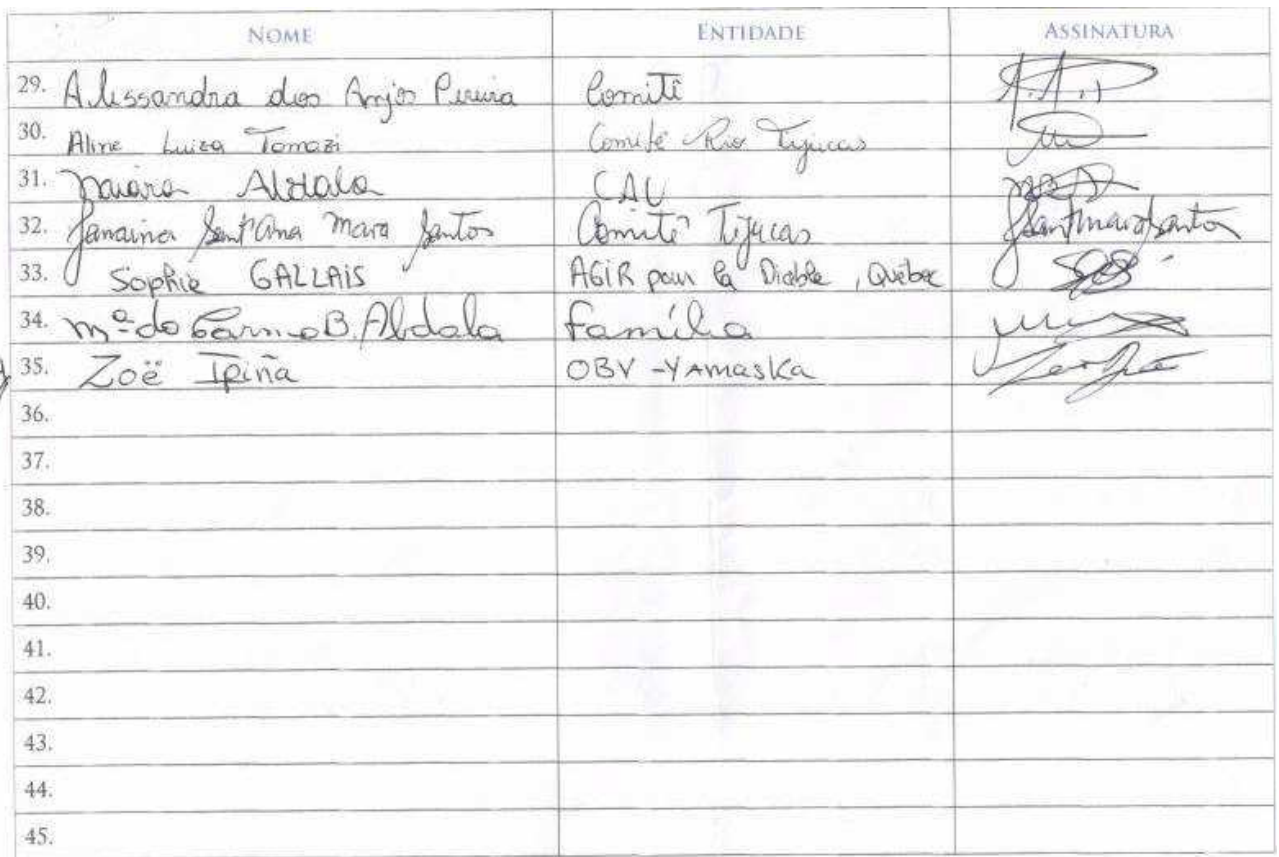 NOME ENTIDADE ASSINATURA
29. Alessandra dos Anjos Pereira Comitê A.A.P
30. Aline Luiza Tomazi Comitê Rio Tijucas
31. Naiara Abdala CAU
32. Janaina Sant'Ana Mara Santos Comitê Tijucas JSantMaraSantos
33. Sophie GALLAIS AGIR pour la Diable, Québec
34. Mª do Carmo B. Abdala Família
35. Zoë Ipiña OBV - YAMASKA
36.
37.
38.
39.
40.
41.
42.
43.
44.
45.